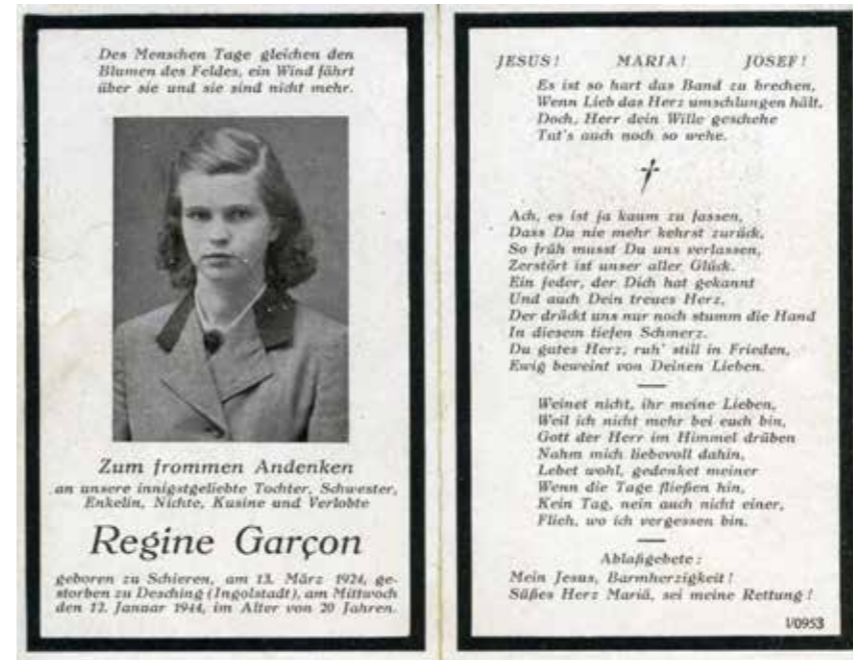 Des Menschen Tage gleichen den
Blumen des Feldes, ein Wind fährt
über sie und sie sind nicht mehr.
Zum frommen Andenken
an unsere innigstgeliebte Tochter, Schwester,
Enkelin, Nichte, Kusine und Verlobte
Regine Garçon
geboren zu Schieren, am 13. März 1924, ge-
storben zu Desching (Ingolstadt), am Mittwoch
den 12. Januar 1944, im Alter von 20 Jahren.
JESUS! MARIA! JOSEF!
Es ist so hart das Band zu brechen,
Wenn Lieb das Herz umschlungen hält,
Doch, Herr dein Wille geschehe
Tut's auch noch so wehe.
Ach, es ist ja kaum zu fassen,
Dass Du nie mehr kehrst zurück,
So früh musst Du uns verlassen,
Zerstört ist unser aller Glück.
Ein jeder, der Dich hat gekannt
Und auch Dein treues Herz,
Der drückt uns nur noch stumm die Hand
In diesem tiefen Schmerz.
Du gutes Herz, ruh' still in Frieden,
Ewig beweint von Deinen Lieben.
Weinet nicht, ihr meine Lieben,
Weil ich nicht mehr bei euch bin,
Gott der Herr im Himmel drüben
Nahm mich liebevoll dahin,
Lebet wohl, gedenket meiner
Wenn die Tage fließen hin,
Kein Tag, nein auch nicht einer,
Flieh, wo ich vergessen bin.
Ablaßgebete:
Mein Jesus, Barmherzigkeit!
Süßes Herz Mariä, sei meine Rettung!
1/0953